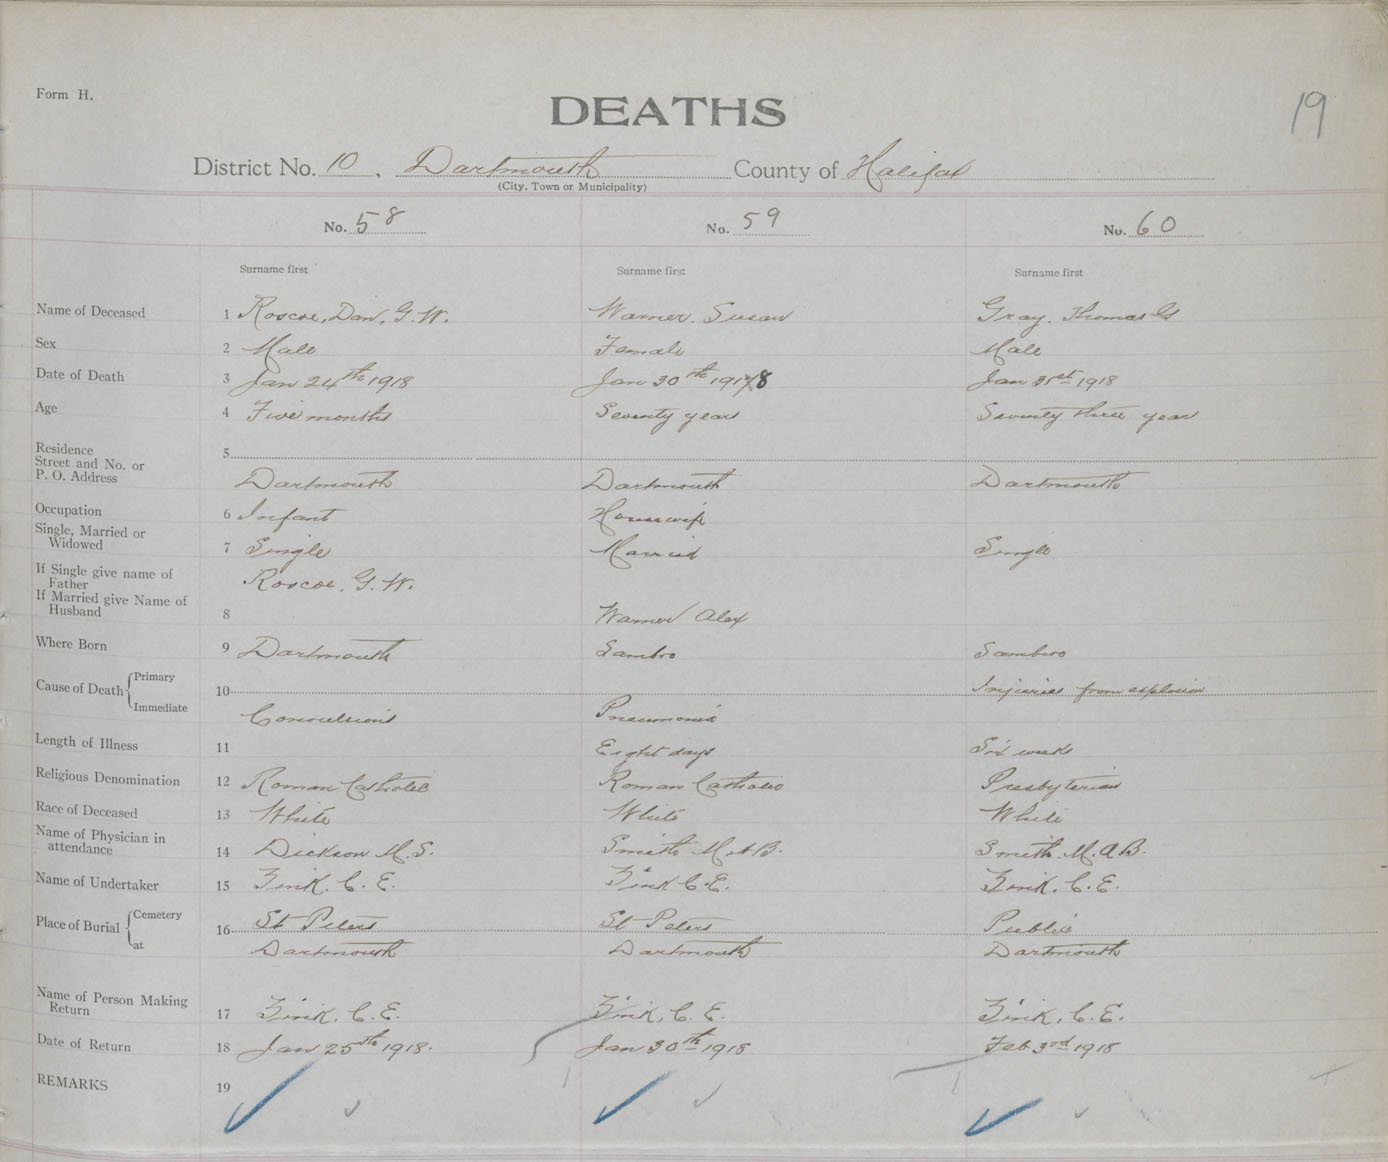 Form H.
DEATHS
19
District No. 10, Dartmouth County of Halifax
(City, Town or Municipality)
No. 58 No. 59 No. 60
Surname first Surname first Surname first
Name of Deceased 1 Roscoe, Dan, G. W. Warner, Susan Gray, Thomas
Sex 2 Male Female Male
Date of Death 3 Jan 24th 1918 Jan 30th 1918 Jan 31st 1918
Age 4 Five months Seventy years Seventy three years
Residence
Street and No. or 5
P. O. Address Dartmouth Dartmouth Dartmouth
Occupation 6 Infant Housewife
Single, Married or
Widowed 7 Single Married Single
If Single give name of
Father Roscoe, G. W.
If Married give Name of
Husband 8 Warner Alex
Where Born 9 Dartmouth Sambro Sambro
Cause of Death Primary 10 Injuries from explosion
Immediate Convulsions Pneumonia
Length of Illness 11 Eight days Six weeks
Religious Denomination 12 Roman Catholic Roman Catholic Presbyterian
Race of Deceased 13 White White White
Name of Physician in
attendance 14 Dickson M. S. Smith M. A B. Smith, M. A B.
Name of Undertaker 15 Zink, C. E. Zink C. E. Zink, C. E.
Place of Burial Cemetery 16 St Peters St Peters Public
at Dartmouth Dartmouth Dartmouth
Name of Person Making
Return 17 Zink, C. E. Zink, C. E. Zink, C. E.
Date of Return 18 Jan 25th 1918. Jan 30th 1918 Feb 3rd 1918
REMARKS 19